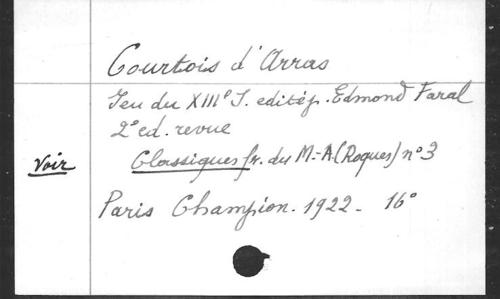 Courtois d'Arras
Jeu du XIIIe S. edité p. Edmond Faral
2e ed. revue
Voir Classiques fr. du M.-A. (Roques) n° 3
Paris Champion. 1922 - 16°